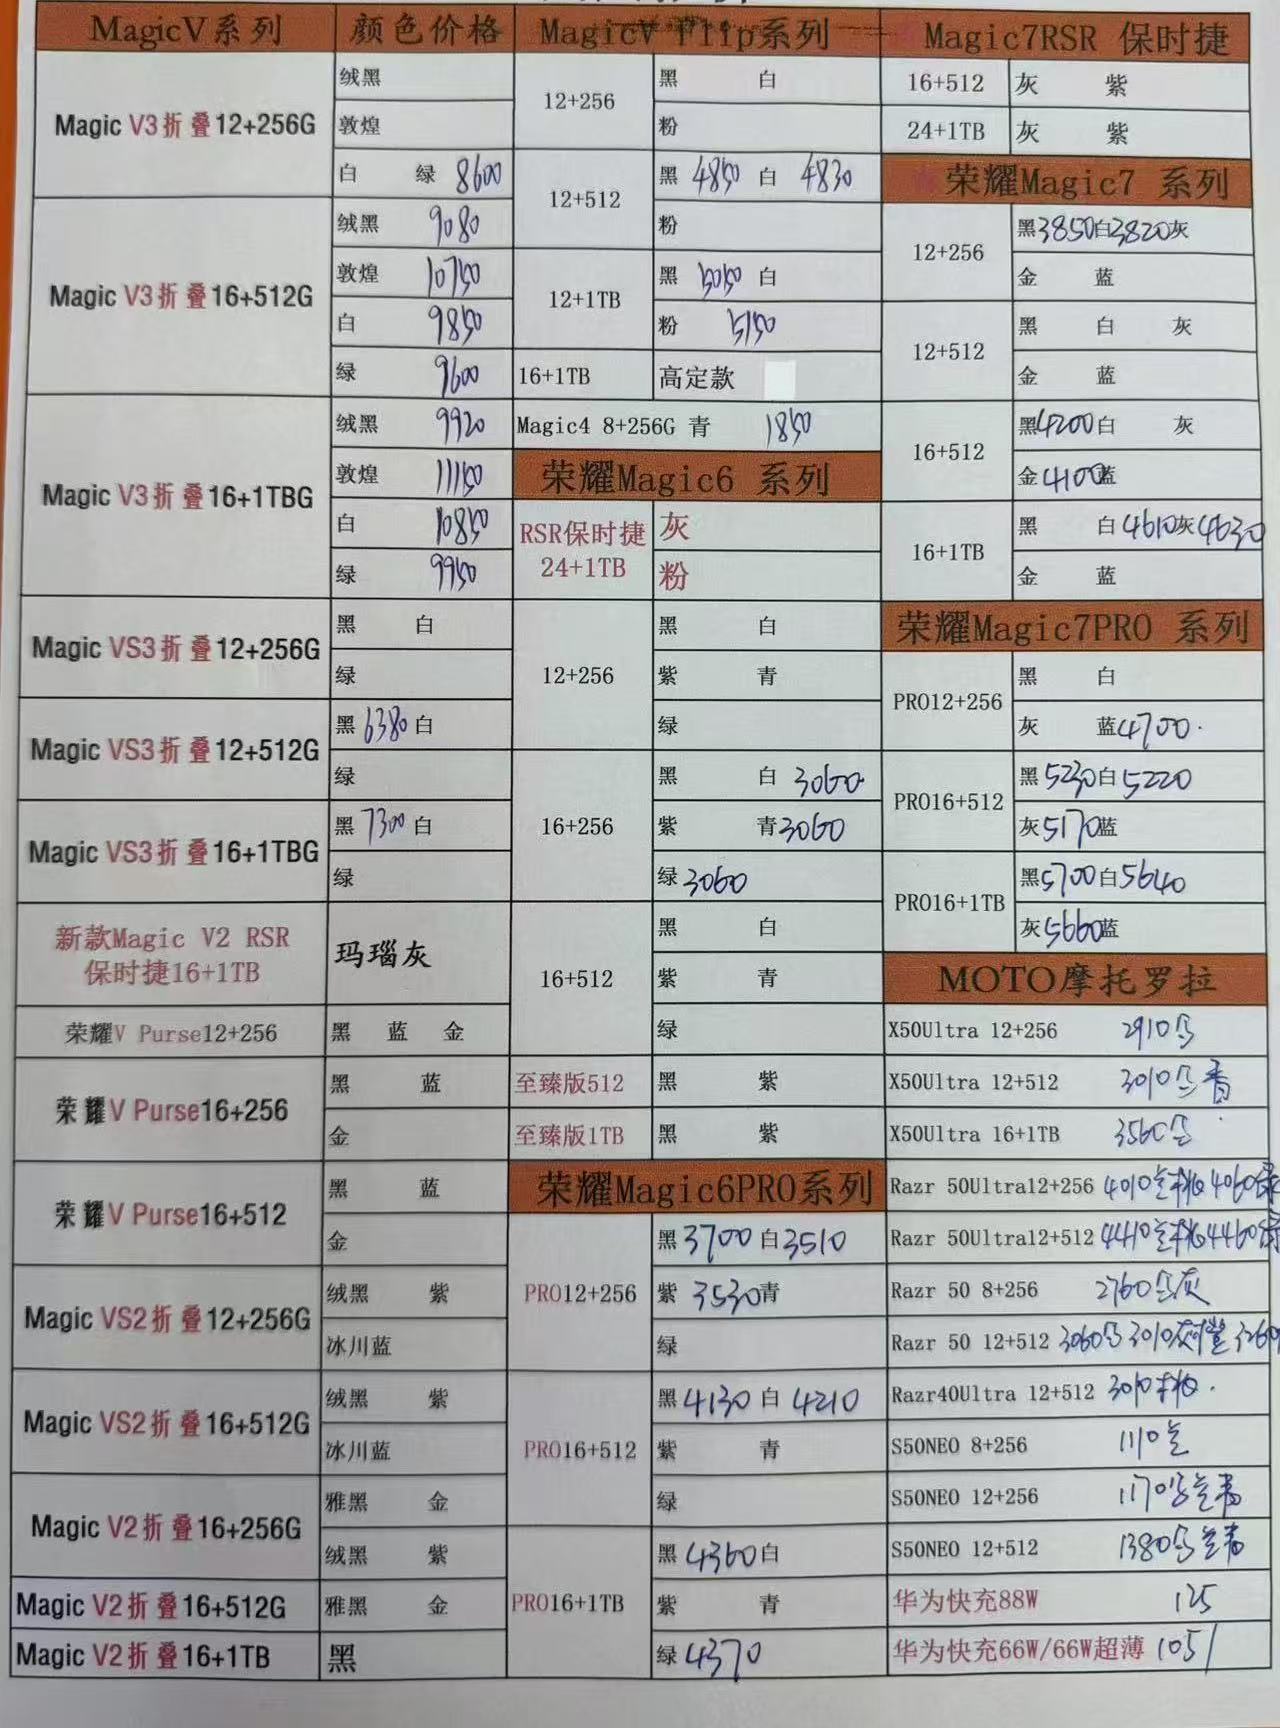 MagicV系列 颜色价格
Magic V3折叠12+256G
绒黑
敦煌
白 绿 8600
Magic V3折叠16+512G
绒黑 9080
敦煌 10750
白 9850
绿 9600
Magic V3折叠16+1TBG
绒黑 9920
敦煌 11150
白 10850
绿 9950
Magic VS3折叠12+256G
黑 白
绿
Magic VS3折叠12+512G
黑 6380 白
绿
Magic VS3折叠16+1TBG
黑 7300 白
绿
新款Magic V2 RSR
保时捷16+1TB
玛瑙灰
荣耀V Purse12+256 黑 蓝 金
荣耀V Purse16+256
黑 蓝
金
荣耀V Purse16+512
黑 蓝
金
Magic VS2折叠12+256G
绒黑 紫
冰川蓝
Magic VS2折叠16+512G
绒黑 紫
冰川蓝
Magic V2折叠16+256G
雅黑 金
绒黑 紫
Magic V2折叠16+512G 雅黑 金
Magic V2折叠16+1TB 黑
MagicV flip系列
12+256
黑 白
粉
12+512
黑 4850 白 4830
粉
12+1TB
黑 5050 白
粉 5150
16+1TB 高定款
Magic4 8+256G 青 1850
荣耀Magic6 系列
RSR保时捷
24+1TB
灰
粉
12+256
黑 白
紫 青
绿
16+256
黑 白 3060
紫 青3060
绿 3060
16+512
黑 白
紫 青
绿
至臻版512 黑 紫
至臻版1TB 黑 紫
荣耀Magic6PRO系列
PRO12+256
黑 3700 白3510
紫 3530青
绿
PRO16+512
黑4130 白 4210
紫 青
绿
PRO16+1TB
黑 4360白
紫 青
绿 4370
Magic7RSR 保时捷
16+512 灰 紫
24+1TB 灰 紫
荣耀Magic7 系列
12+256
黑3850白3820灰
金 蓝
12+512
黑 白 灰
金 蓝
16+512
黑4200白 灰
金4100蓝
16+1TB
黑 白4610灰4630
金 蓝
荣耀Magic7PRO 系列
PRO12+256
黑 白
灰 蓝4700
PRO16+512
黑5230白5220
灰5170蓝
PRO16+1TB
黑5700白5640
灰5660蓝
MOTO摩托罗拉
X50Ultra 12+256 2910
X50Ultra 12+512 3010 青
X50Ultra 16+1TB 3560
Razr 50Ultra12+256 4010 4060
Razr 50Ultra12+512 4410 4460
Razr 50 8+256 2760 灰
Razr 50 12+512 3060 3010 3260
Razr40Ultra 12+512 3010
S50NEO 8+256 1110
S50NEO 12+256 1170
S50NEO 12+512 1380
华为快充88W 125
华为快充66W/66W超薄 105